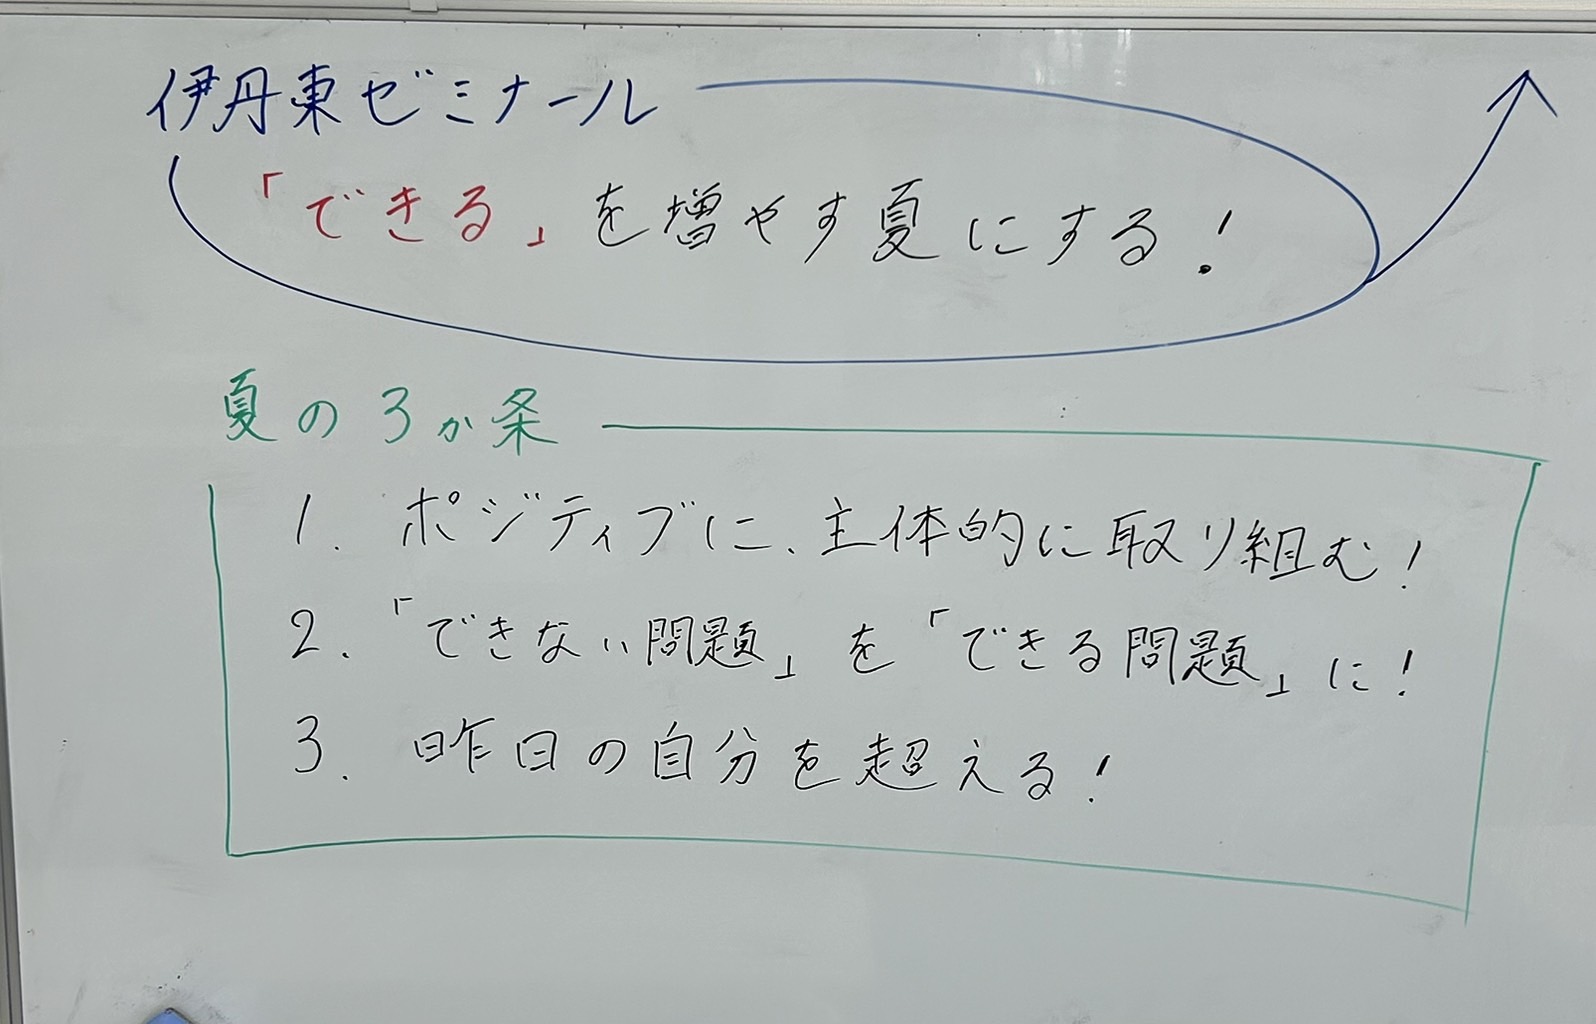 伊丹東ゼミナール
「できる」を増やす夏にする!
夏の3か条
1. ポジティブに、主体的に取り組む!
2. 「できない問題」を「できる問題」に!
3. 昨日の自分を超える!